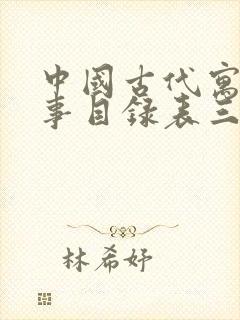 中國古代寓
事目録表三
林希妤